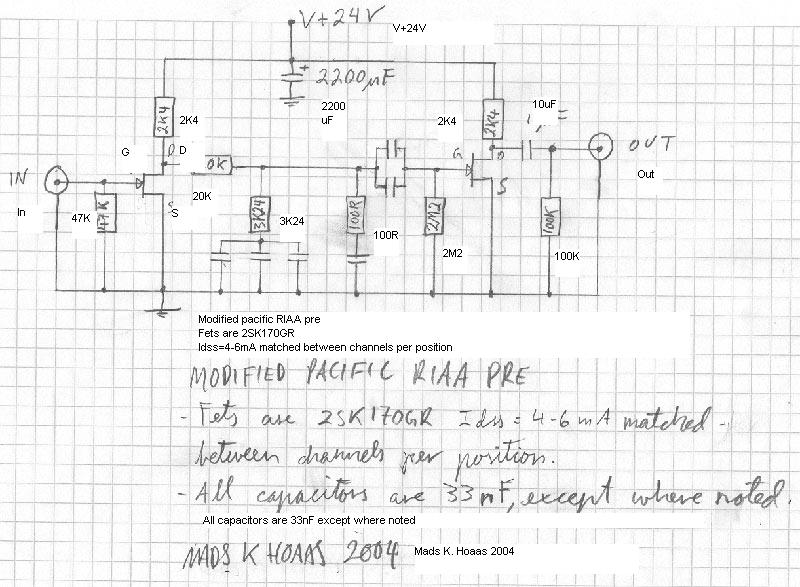 V+24V
V+24V
+
2200µF
2200
uF
2K4
2K4
2K4
2K4
10uF
G
D
D
G
D
OUT
Out
IN
In
0K
20K
S
S
S
47K
47K
3K24
3K24
100R
100R
2M2
2M2
100K
100K
Modified pacific RIAA pre
Fets are 2SK170GR
Idss=4-6mA matched between channels per position
MODIFIED PACIFIC RIAA PRE
- Fets are 2SK170GR Idss = 4-6 mA matched -
between channels per position.
- All capacitors are 33nF, except where noted.
All capacitors are 33nF except where noted
MADS K HOAAS 2004
Mads K. Hoaas 2004